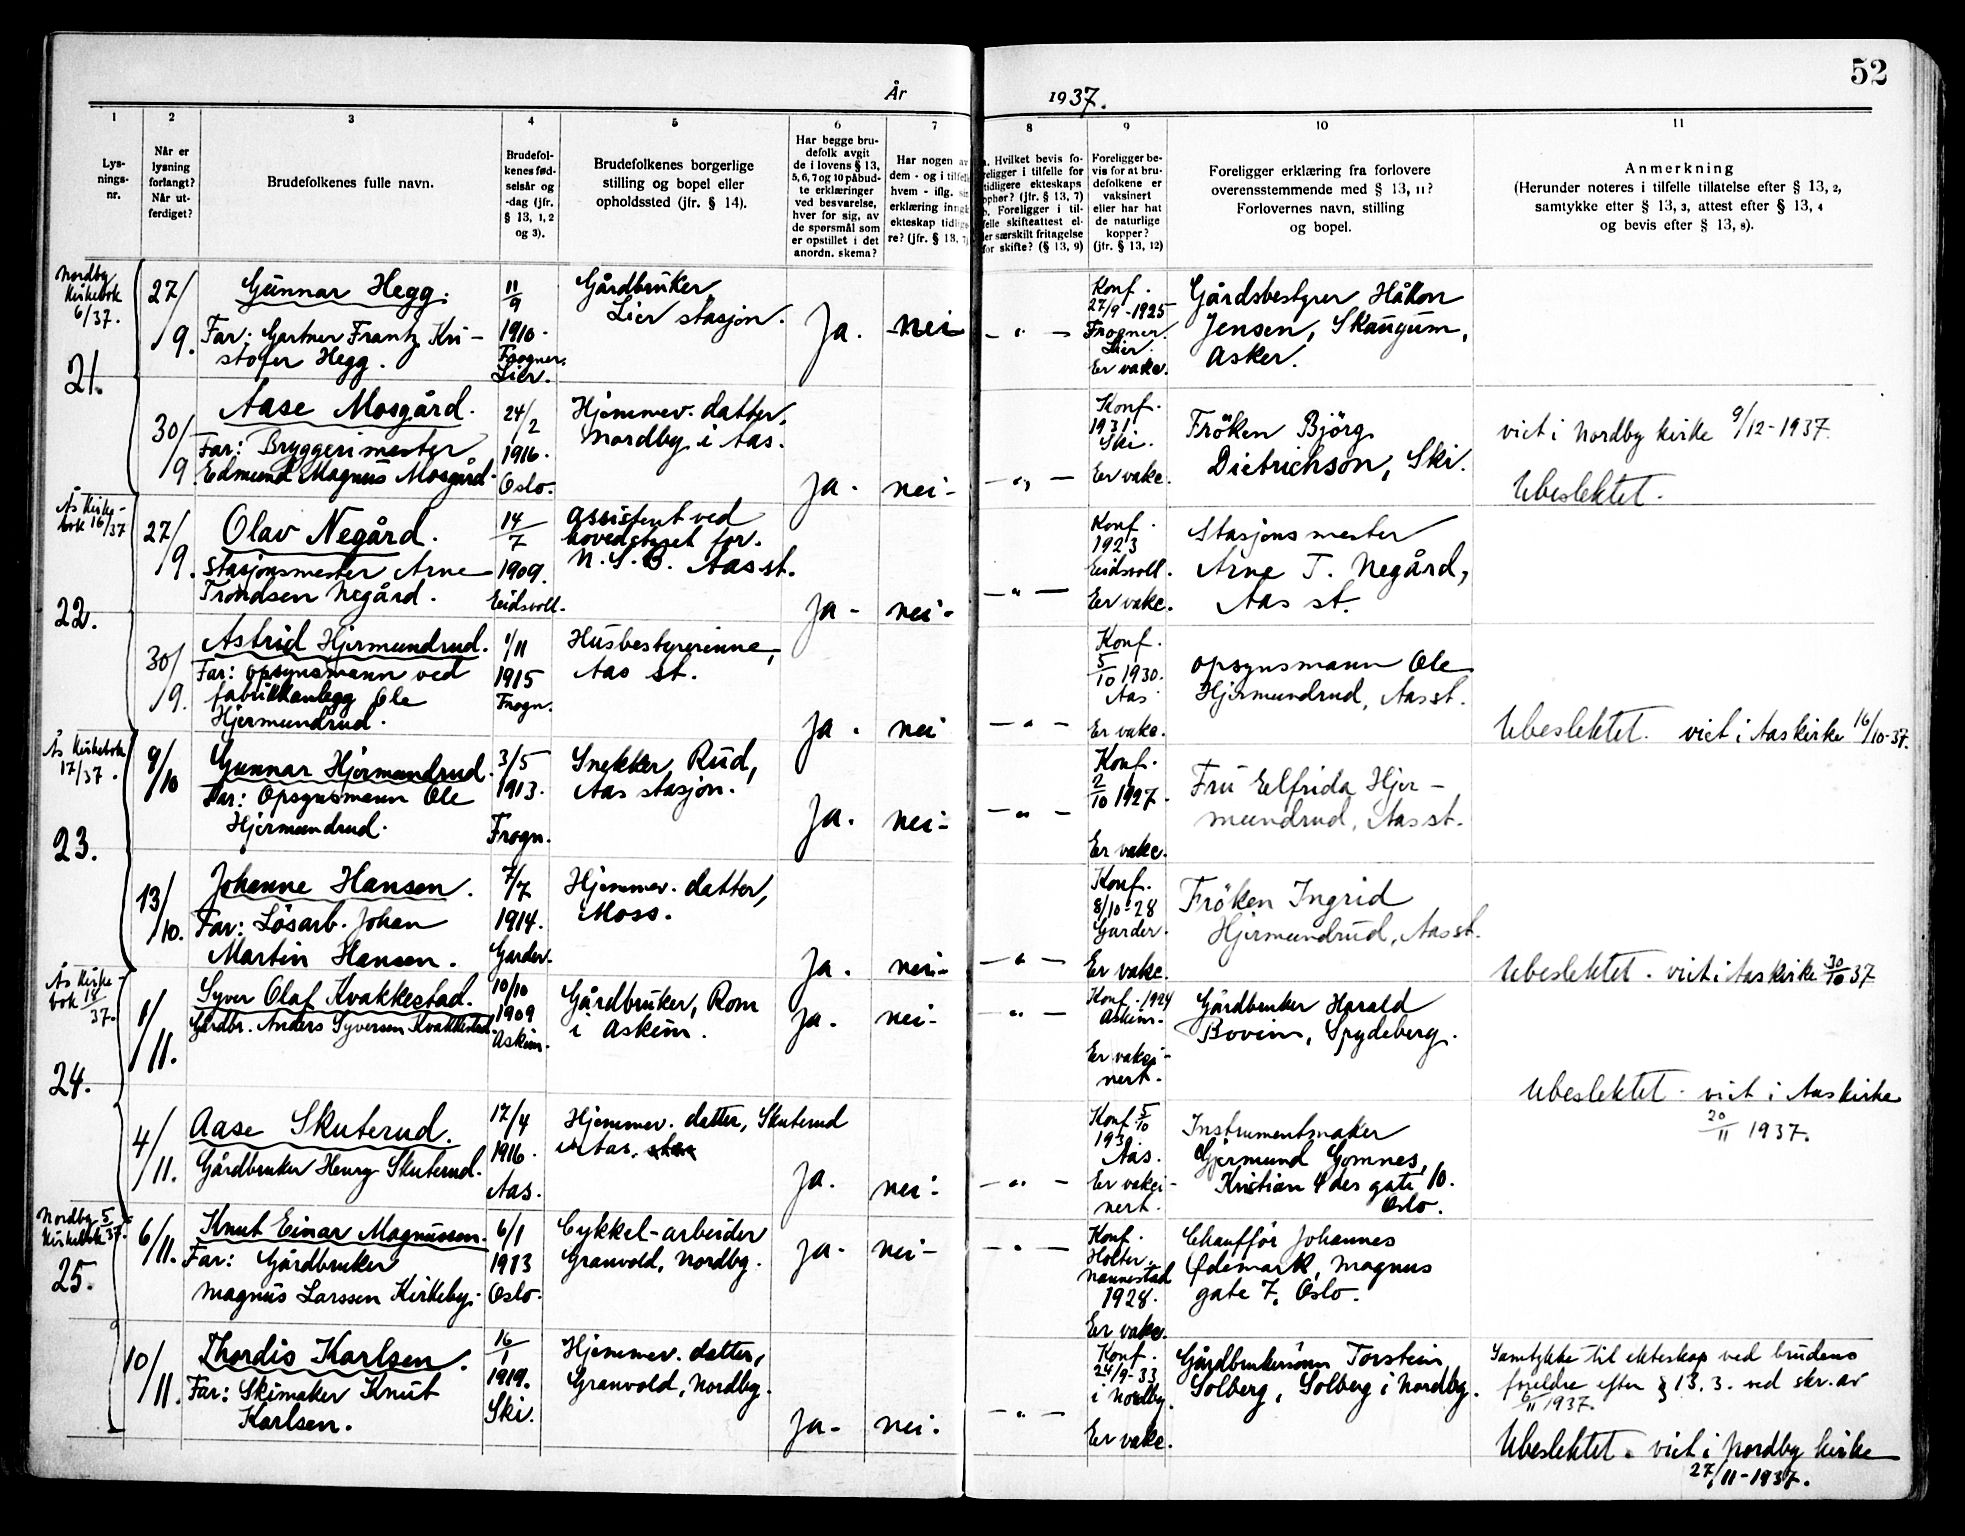 52
År 1937.
1 2 3 4 5 6 7 8 9 10 11
Lys-
nings-
nr.
Når er
lysning
forlangt?
Når ut-
ferdiget?
Brudefolkenes fulle navn.
Brudefol-
kenes fød-
selsår og
-dag (jfr.
§ 13, 1, 2
og 3).
Brudefolkenes borgerlige
stilling og bopel eller
opholdssted (jfr. § 14).
Har begge bru-
defolk avgit
de i lovens § 13,
5, 6, 7 og 10 påbud-
te erklæringer
ved besvarelse,
hver for sig, av
de spørsmål som
er opstillet i det
anordn. skema?
Har nogen av
dem - og i tilfelle
hvem - iflg. sin
erklæring inngått
ekteskap tidlige-
re? (jfr. § 13, 7)
a. Hvilket bevis fo-
religger i tilfelle for
tidligere ekteskaps
ophør? (jfr. § 13, 7)
b. Foreligger i til-
felle skifteattest el-
ler særskilt fritagelse
for skifte? (§ 13, 9)
Foreligger be-
vis for at bru-
defolkene er
vaksinert
eller har hat
de naturlige
kopper?
(jfr. § 13, 12)
Foreligger erklæring fra forlovere
overensstemmende med § 13, 11?
Forlovernes navn, stilling
og bopel.
Anmerkning
(Herunder noteres i tilfelle tillatelse efter § 13, 2,
samtykke efter § 13, 3, attest efter § 13, 4
og bevis efter § 13, 8).
Nordby
Kirkebok
6/37.
21.
27/9.
Gunnar Hegg.
Far: Gartner Frantz Kri-
stofer Hegg.
11/9
1910.
Frogner.
Lier.
Gårdbruker
Lier stasjon.
Ja.
nei
— " —
Konf.
27/9-1925
Frogner.
Lier.
Er vakc.
Gårdsbestyrer Håkon
Jensen, Skaugum,
Asker.
30/9
Aase Mosgård.
Far: Bryggerimester
Edmund Magnus Mosgård.
24/2
1916.
Oslo.
Hjemmev. datter,
Nordby i Aas.
Ja.
nei-
— " —
Konf.
1931
Ski.
Er vakc.
Fröken Björg
Dietrichson, Ski.
viet i Nordby kirke 9/12-1937.
Ubeslektet.
Ås Kirke-
bok 16/37
22.
27/9.
Olav Negård.
Stasjonsmester Arne
Trondsen Negård.
14/7
1909.
Eidsvoll.
Assistent ved
hovedstyret for.
N. S. B. Aas st.
Ja-
nei-
— " —
Konf.
1923
Eidsvoll.
Er vakc.
Stasjonsmester
Arne T. Negård,
Aas st.
30/9.
Astrid Hjermundrud.
Far: opsynsmann ved
fabrikkanlegg Ole
Hjermundrud.
1/11
1915
Frogn.
Husbestyrerinne,
Aas st.
Ja.
nei
— " —
Konf.
5/10 1930.
Aas
Er vakc.
opsynsmann Ole
Hjermundrud, Aas st.
Ubeslektet. viet i Aas kirke 16/10-37.
Ås Kirkebok
17/37.
23.
9/10
Gunnar Hjermundrud.
Far: Opsynsmann Ole
Hjermundrud.
3/5
1913.
Frogn.
Snekker, Rud,
Aas stasjon.
Ja.
nei-
— " —
Konf.
2/10 1927.
Er vakc.
Fru Elfrida Hjer-
mundrud, Aas st.
13/10.
Johanne Hansen.
Far: Lösarb. Johan
Martin Hansen.
7/7
1914.
Garder.
Hjemmev. datter,
Moss.
Ja.
nei-
— " —
Konf.
8/10-28
Garder.
Er vakc.
Fröken Ingrid
Hjermundrud, Aas st.
Ubeslektet. viet i Aas kirke 30/10 37
Ås Kirke-
bok 18/37.
24.
1/11.
Syver Olaf Kvakkestad.
Gårdbr. Anders Syversen Kvakkestad.
10/10
1909
Askim.
Gårdbruker, Rom
i Askim.
Ja.
nei-
— " —
Konf. 1924
Askim.
Er vakci-
nert.
Gårdbruker Harald
Bovim, Spydeberg.
Ubeslektet. viet i Aas kirke
20/11 1937.
4/11.
Aase Skuterud.
Gårdbruker Henry Skuterud.
17/4
1916.
Aas.
Hjemmev. datter, Skuterud
i Aas.
Ja.
nei-
— " —
Konf. 5/10
1930.
Aas.
Er vakci-
nert.
Instrumentmaker
Gjermund Gomnes,
Kristian 4des gate 10.
Oslo.
Nordby 5/37.
Kirkebok
25.
6/11.
Knut Einar Magnussen.
Far: Gårdbruker
Magnus Larssen Kirkeby.
6/1
1913
Oslo.
Cykkel-arbeider
Granvold, Nordby.
Ja-
nei-
— " —
Konf.
Holter
Nannestad
1928.
Er vakc.
Chaufför Johannes
Ødemark, Magnus
gate 7. Oslo.
10/11.
Thordis Karlsen.
Far: Skimaker Knut
Karlsen.
16/1
1919.
Ski.
Hjemmev. datter,
Granvold, Nordby.
Ja-
nei.
— " —
Konf.
24/9-33
i Nordby.
Er vakc.
Gårdbrukersönn Torstein
Solberg, Solberg i Nordby.
Samtykke til ekteskap ved brudens
foreldre efter § 13.3. ved skr. av
6/11 1937.
Ubeslektet. viet i Nordby kirke
27/11-1937.